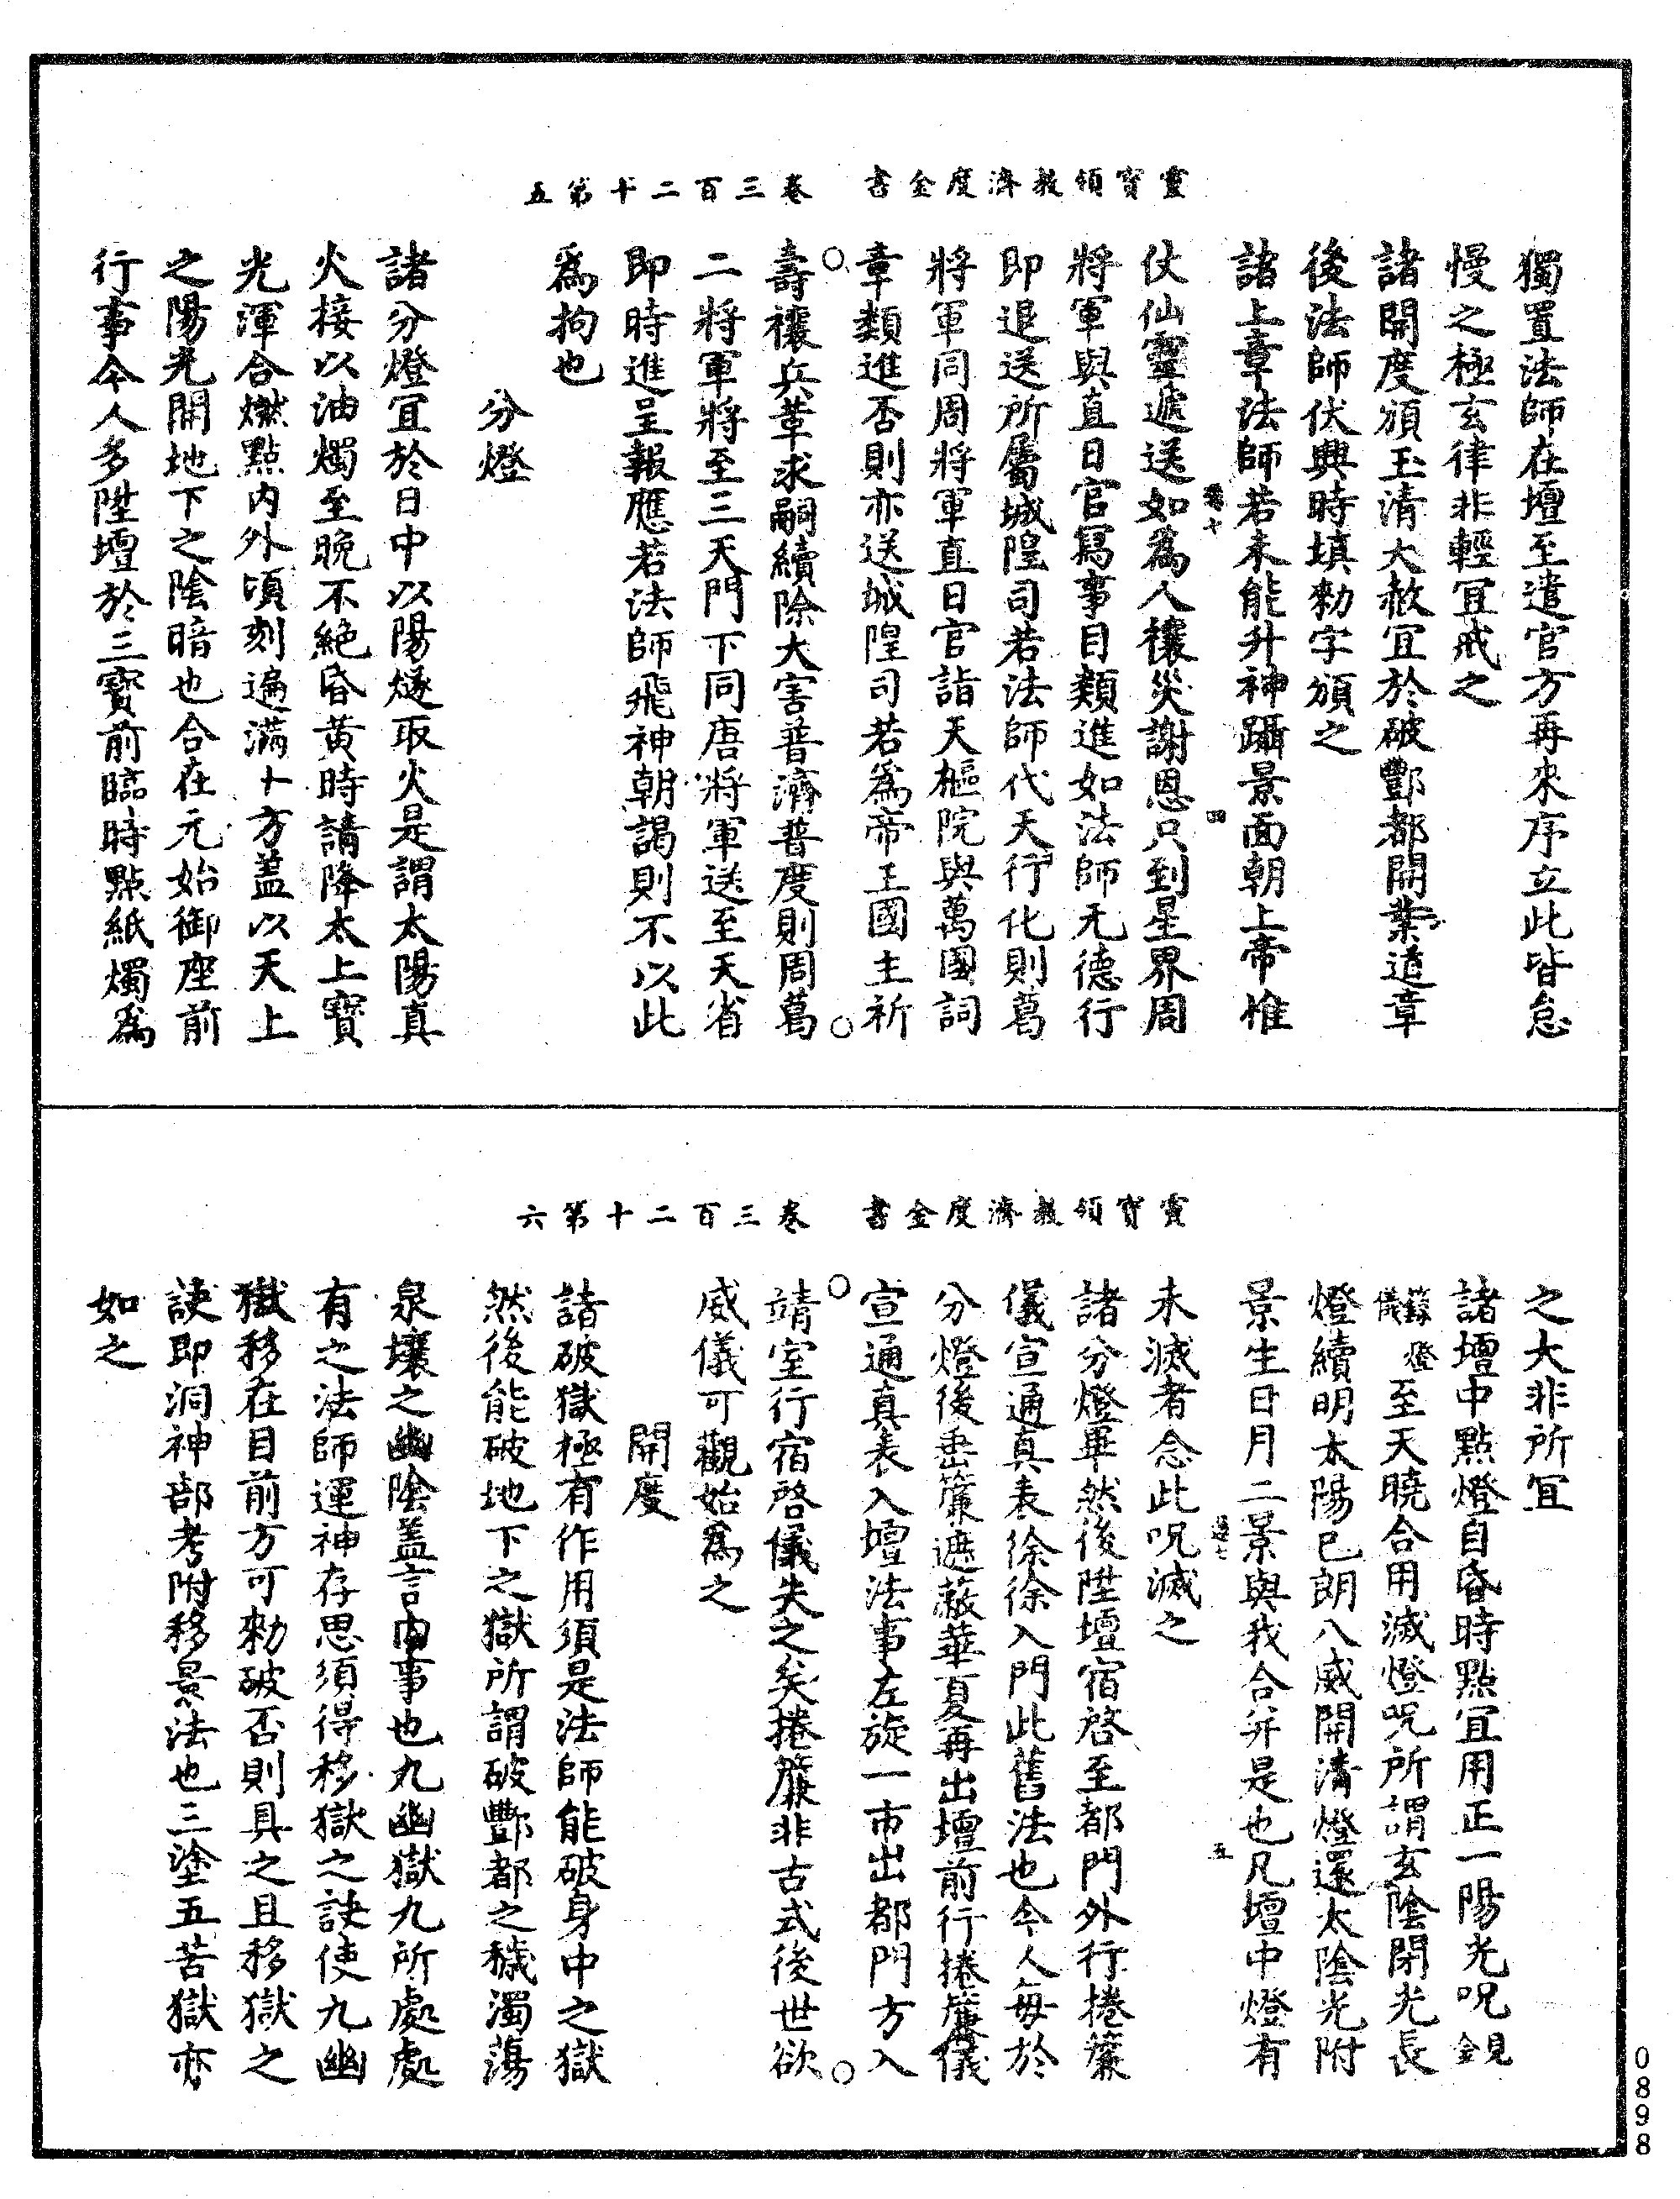 靈寶領教濟度金書　卷三百二十第五
獨置法師在壇至遣官方再來序立此皆怠
慢之極玄律非輕宜戒之
諸開度頒玉清大赦宜於破酆都開業道章
後法師伏興時填勑字頒之
諸上章法師若未能升神躡景面朝上帝惟
仗仙靈遞送如爲人禳災謝恩只到星界周
將軍與直日官寫事目類進如法師无德行
即退送所屬城隍司若法師代天行化則葛
將軍同周將軍直日官詣天樞院與萬國詞
章類進否則亦送城隍司若爲帝王國主祈
壽禳兵革求嗣續除大害普濟普度則周葛
二將軍將至三天門下同唐將軍送至天省
即時進呈報應若法師飛神朝謁則不以此
爲拘也
分燈
諸分燈宜於日中以陽燧取火是謂太陽真
火接以油燭至晚不絕昏黃時請降太上寶
光渾合燃點内外頃刻遍滿十方蓋以天上
之陽光開地下之陰暗也合在元始御座前
行事今人多陞壇於三寶前臨時點紙燭爲
靈寶領教濟度金書　卷三百二十第六
之大非所宜
諸壇中點燈自昏時點宜用正一陽光呪見
籙燈儀至天曉合用滅燈呪所謂玄陰閉光長
燈續明太陽已朗八威開清燈還太陰光附
景生日月二景與我合并是也凡壇中燈有
未滅者念此呪滅之
諸分燈畢然後陞壇宿啓至都門外行捲簾
儀宣通真表徐徐入門此舊法也今人毎於
分燈後垂簾遮蔽華夏再出壇前行捲簾儀
宣通真表入壇法事左旋一帀出都門方入
靖室行宿啓儀失之矣捲簾非古式後世欲
威儀可觀始爲之
開度
諸破獄極有作用須是法師能破身中之獄
然後能破地下之獄所謂破酆都之穢濁蕩
泉壤之幽陰蓋言内事也九幽獄九所處處
有之法師運神存思須得移獄之訣使九幽
獄移在目前方可勑破否則具之且移獄之
訣即洞神部考附移景法也三塗五苦獄亦
如之
0898